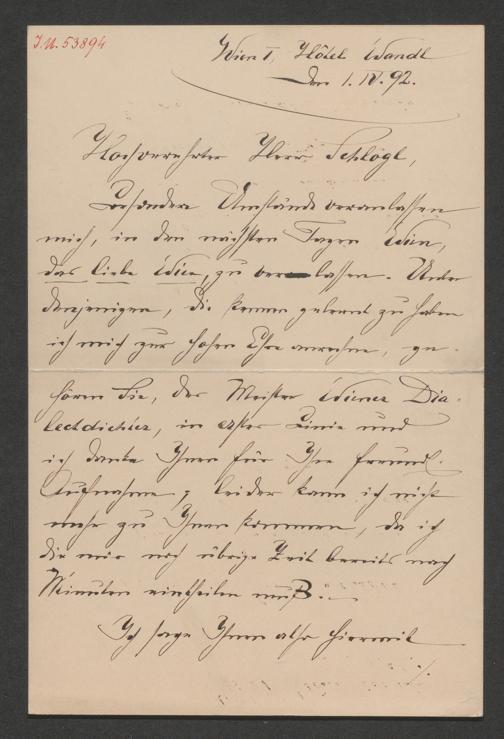 J.N. 53894
Wien I, Hôtel Wandl
den 1. IV. 92.
Hochverehrter Herr Schlögl,
Besondere Umstände veranlassen
mich, in den nächsten Tagen Wien,
das liebe Wien, zu verlassen. Unter
denjenigen, die kennen gelernt zu haben
ich mir zur hohen Ehre anrechne, ge-
hören Sie, der Meister Wiener Dia-
lectdichter, in erster Linie und
ich danke Ihnen für Ihre freundl.
Aufnahme; leider kann ich nicht
mehr zu Ihnen kommen, da ich
die mir noch übrige Zeit bereits nach
Minuten eintheilen muß. –
Ich sage Ihnen also hiermit
./.